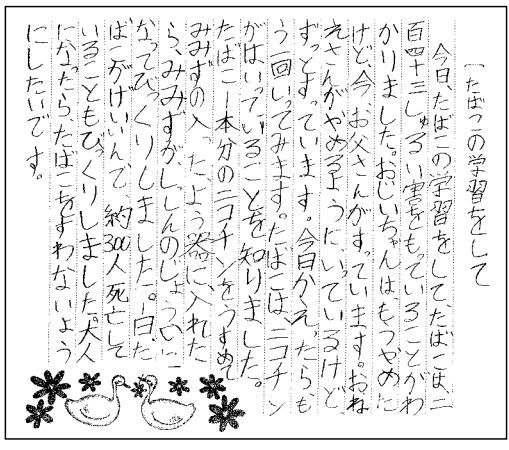 「たばこの学習をして
今日、たばこの学習をして、たばこは、二
百四十三しゅるい害をもっていることがわ
かりました。おじいちゃんは、もうやめた
けど、今、お父さんがすっています。おね
えさんがやめるように、いっているけど、
ずっとすっています。今日かえったらも
う一回いってみます。たばこは、ニコチン
がはいっていることを知りました。
たばこ一本分のニコチンをうすめて
みみずの入ったよう器に入れた
ら、みみずがししんのじょうたいに
なってびっくりしました。一日、た
ばこがげんいんで、約300人死亡して
いることもびっくりしました。大人
になったら、たばこをすわないよう
にしたいです。